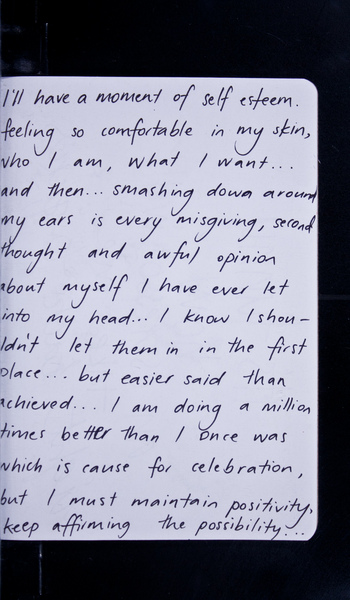 I'll have a moment of self esteem.
feeling so comfortable in my skin,
who I am, what I want...
and then... smashing down around
my ears is every misgiving, second
thought and awful opinion
about myself I have ever let
into my head... I know I shou-
ldn't let them in in the first
place... but easier said than
achieved... I am doing a million
times better than I once was
which is cause for celebration,
but I must maintain positivity,
keep affirming the possibility...